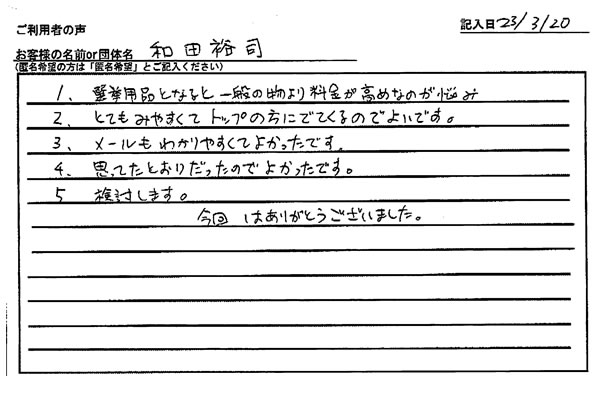 ご利用者の声
記入日 23/3/20
お客様の名前or団体名 和田裕司
(匿名希望の方は「匿名希望」とご記入ください)
1、選挙用品となると一般の物より料金が高めなのが悩み
2、とてもみやすくてトップの方にでてくるのでよいです。
3、メールもわかりやすくてよかったです。
4、思ってたとおりだったのでよかったです。
5 検討します。
今回はありがとうございました。